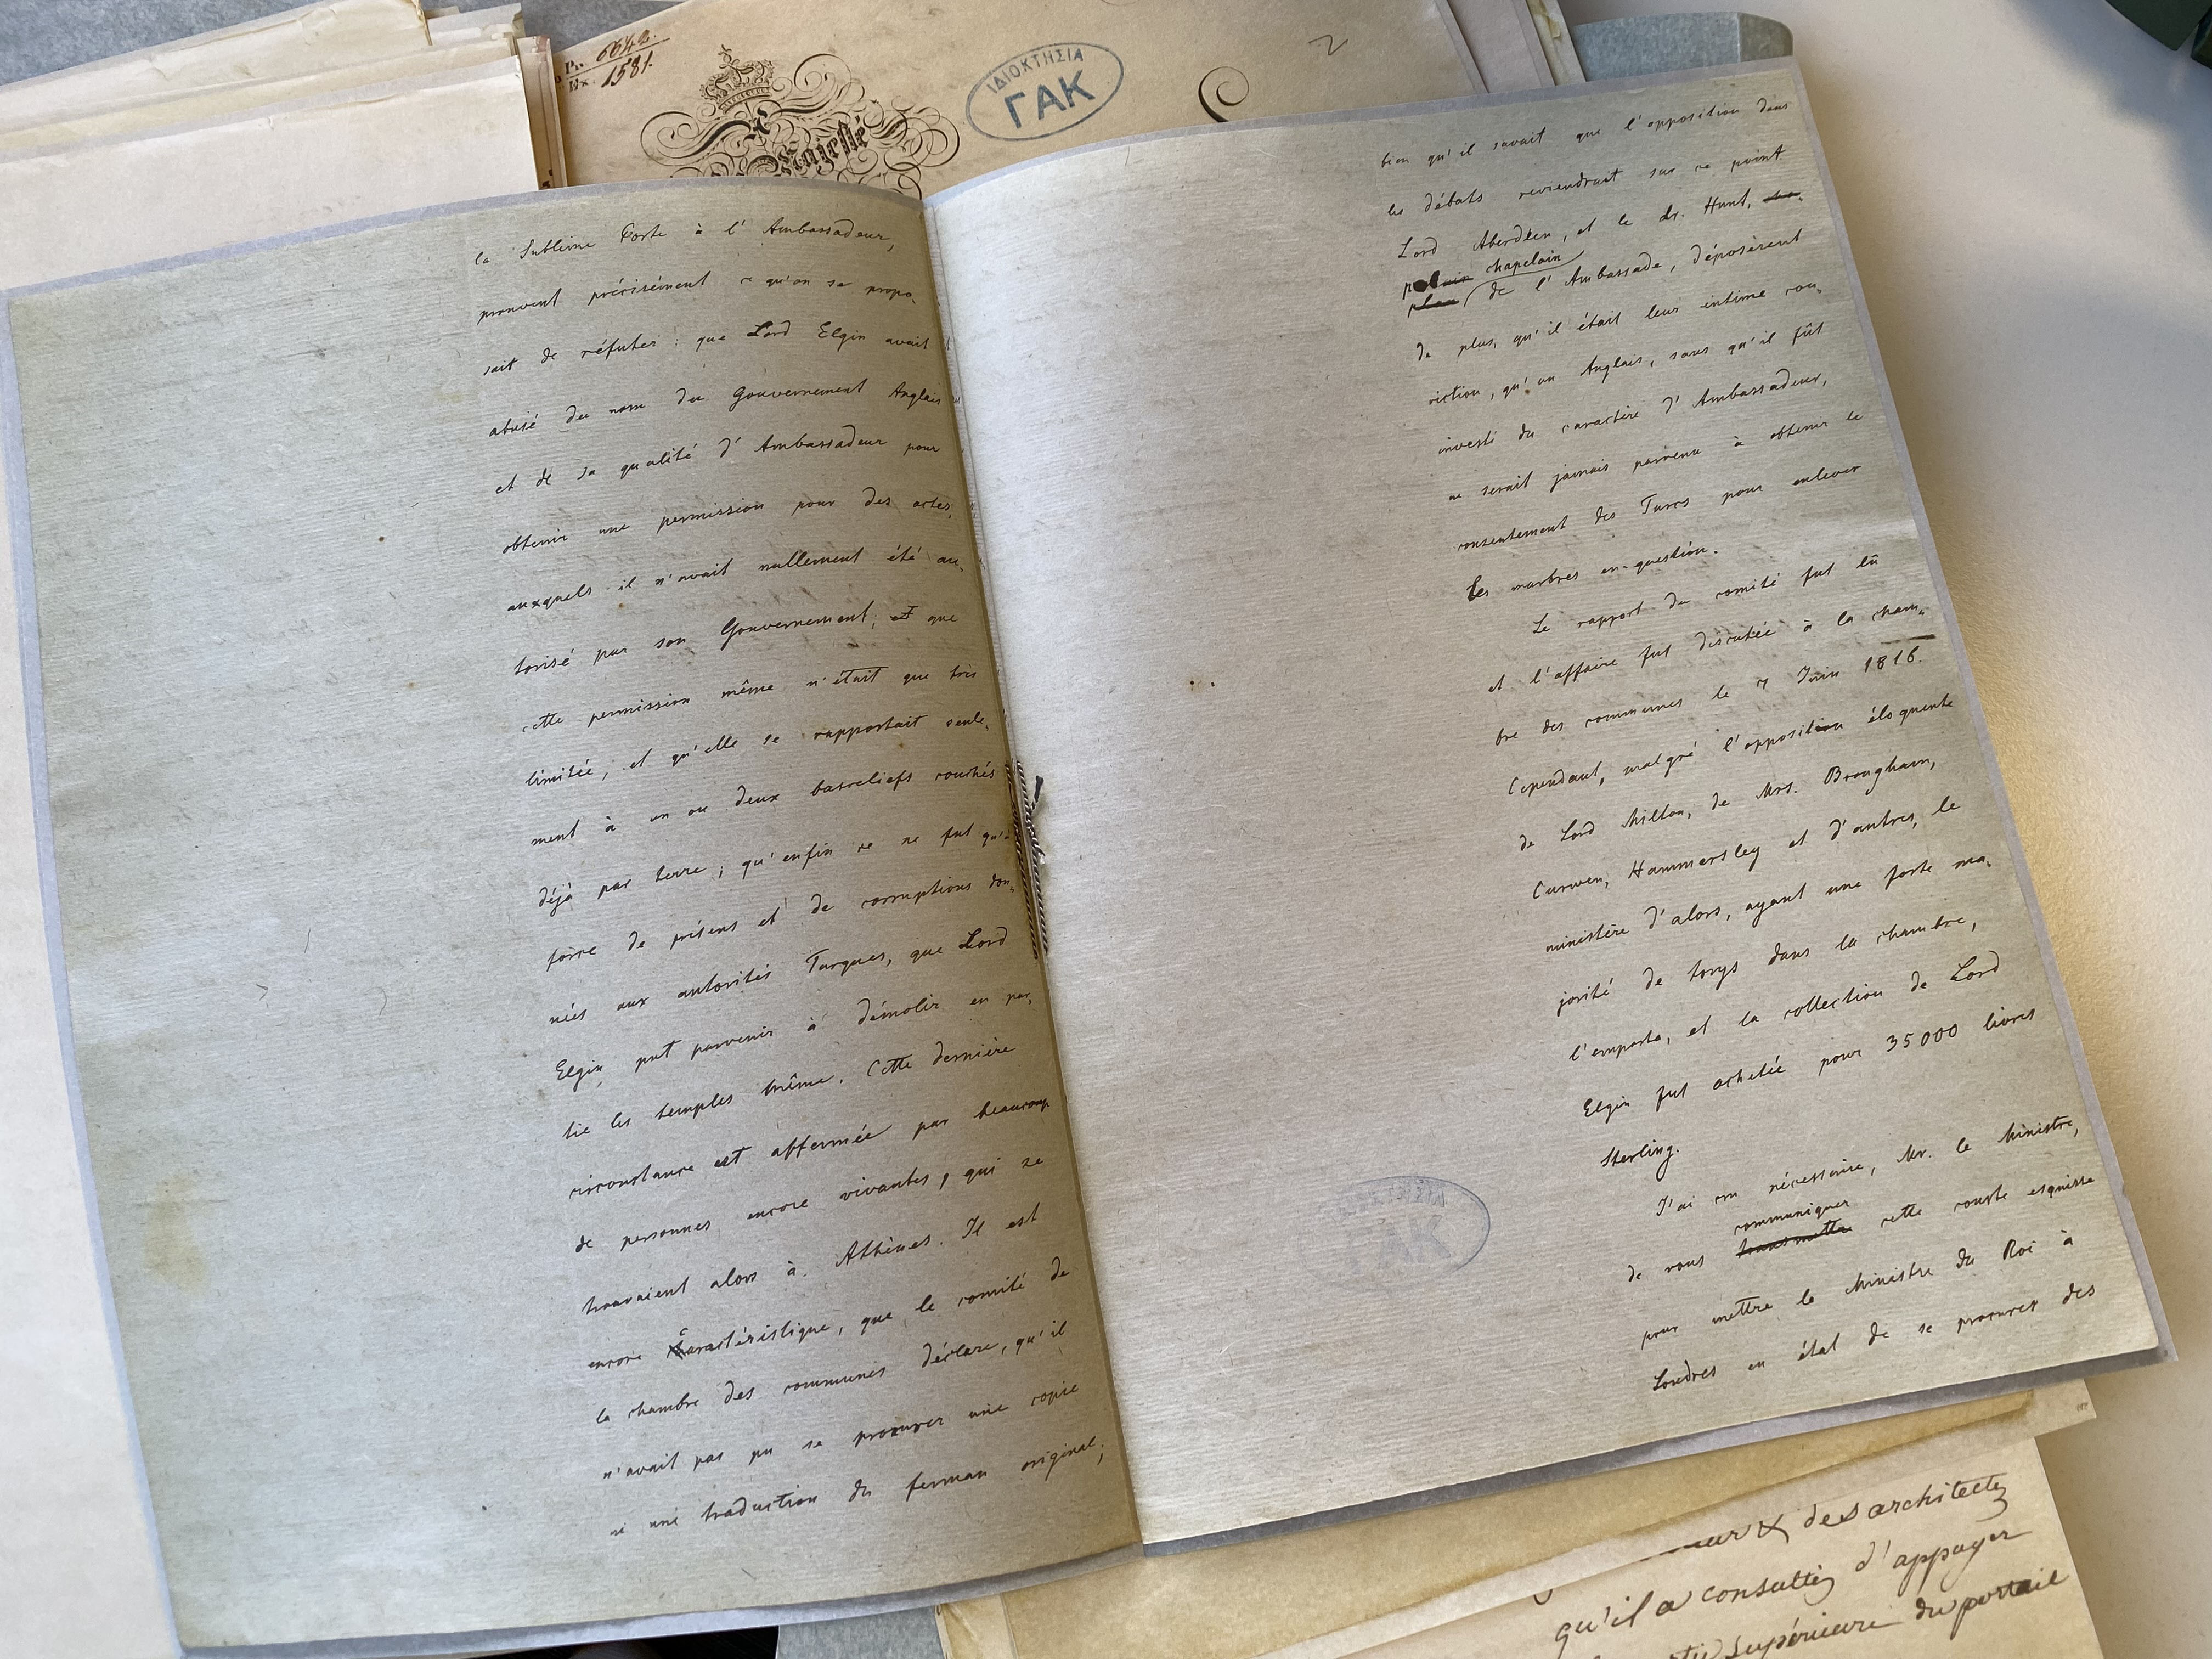 6642.
1581.
Majesté
ΙΔΙΟΚΤΗΣΙΑ
ΓΑΚ
2
la Sublime Porte à l'Ambassadeur,
prouvent précisément ce qu'on se propo-
sait de réfuter: que Lord Elgin avait
abusé du nom du Gouvernement Anglais
et de sa qualité d'Ambassadeur pour
obtenir une permission pour des actes,
auxquels il n'avait nullement été au-
torisé par son Gouvernement; et que
cette permission même n'était que très
limitée, et qu'elle se rapportait seule-
ment à un ou deux basreliefs couchés
déjà par terre; qu'enfin ce ne fut qu'à
force de présens et de corruptions don-
nées aux autorités Turques, que Lord
Elgin put parvenir à démolir en par-
tie les temples même. Cette dernière
circonstance est affermée par beaucoup
de personnes encore vivantes, qui se
trouvaient alors à Athènes. Il est
encore caractéristique, que le comité de
la chambre des communes déclare, qu'il
n'avait pas pu se procurer une copie
ni une traduction du ferman original;
bien qu'il savait que l'opposition dans
les débats reviendrait sur ce point
Lord Aberdeen, et le dr. Hunt,
chapelain
de l'Ambassade, déposèrent
de plus, qu'il était leur intime con-
viction, qu'un Anglais, sans qu'il fût
investi du caractère d'Ambassadeur,
ne serait jamais parvenu à obtenir le
consentement des Turcs pour enlever
les marbres en question.
Le rapport du comité fut lû
et l'affaire fut discutée à la cham-
bre des communes le 7 Juin 1816.
Cependant, malgré l'opposition éloquente
de Lord Milton, de Mrs. Brougham,
Curwen, Hammersley et d'autres, le
ministère d'alors, ayant une forte ma-
jorité de torys dans la chambre,
l'emporta, et la collection de Lord
Elgin fut achetée pour 35000 livres
Sterling.
J'ai cru nécessaire, Mr. le Ministre,
communiquer
de vous transmettre cette courte esquisse
pour mettre le Ministre du Roi à
Londres en état de se procurer des
ΑΚ
des architectes
qu'il a consultés d'appuyer
supérieure du portail